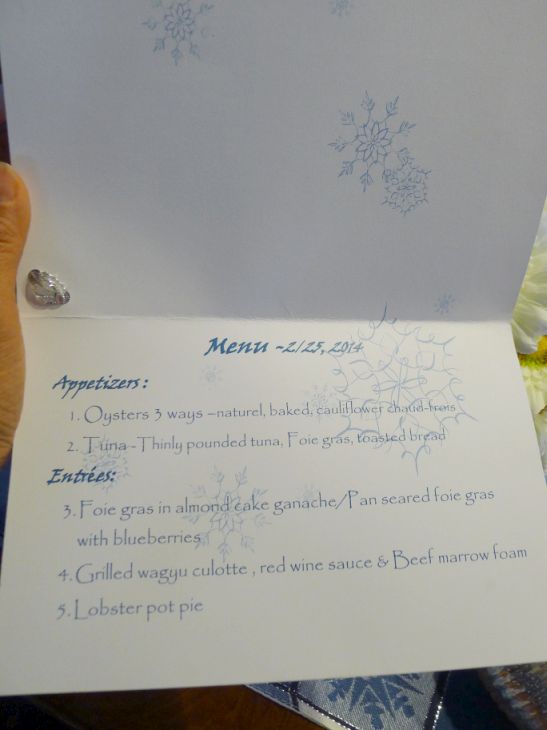 Menu -2/25, 2014
Appetizers:
1. Oysters 3 ways –naturel, baked, cauliflower chaud-frois
2. Tuna -Thinly pounded tuna, Foie gras, toasted bread
Entrées:
3. Foie gras in almond cake ganache/Pan seared foie gras
with blueberries
4. Grilled wagyu culotte , red wine sauce & Beef marrow foam
5. Lobster pot pie